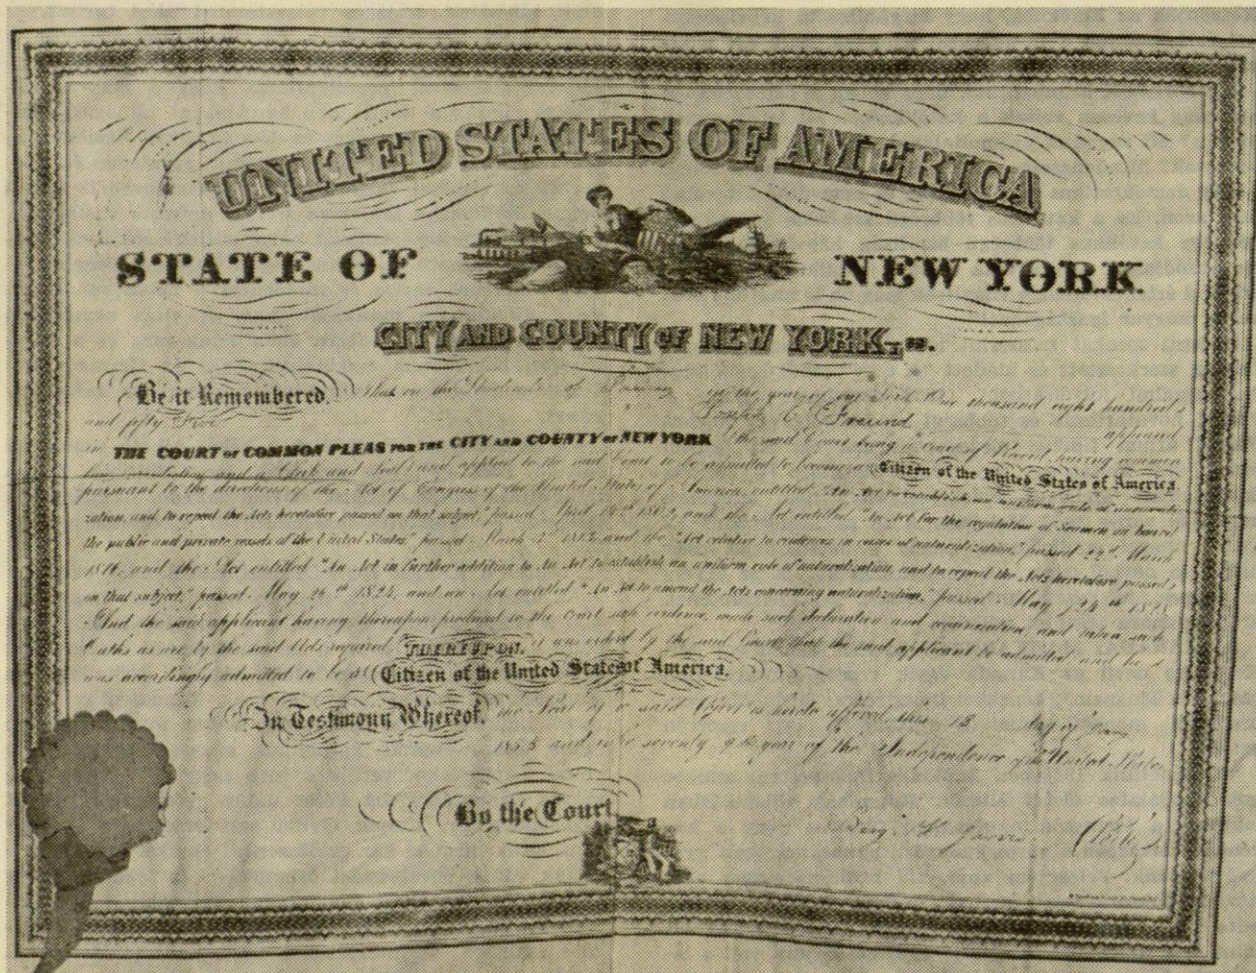 UNITED STATES OF AMERICA
STATE OF NEW YORK
CITY AND COUNTY OF NEW YORK, SS.
Be it Remembered, That on the of in the year of our Lord One thousand eight hundred
and fifty Five Joseph Freund appeared
in THE COURT OF COMMON PLEAS FOR THE CITY AND COUNTY OF NEW YORK (the said Court being a Court of Record having common
law jurisdiction and a Clerk and Seal) and applied to the said Court to be admitted to become a Citizen of the United States of America
pursuant to the directions of the Act of Congress of the United States of America, entitled "An Act to establish an uniform rule of naturali-
zation, and to repeal the Acts heretofore passed on that subject," passed April 14th 1802, and the Act entitled "An Act for the regulation of Seamen on board
the public and private vessels of the United States," passed March 3d 1813, and the "Act relative to evidence in cases of naturalization," passed 22d March
1816, and the Act entitled "An Act in further addition to An Act to establish an uniform rule of naturalization, and to repeal the Acts heretofore passed
on that subject," passed May 26th 1824, and an Act entitled "An Act to amend the Acts concerning naturalization," passed May 24th 1828
And the said applicant having thereupon produced to the Court such evidence, made such declaration and renunciation, and taken such
Oaths as are by the said Acts required THEREUPON, it was ordered by the said Court, that the said applicant be admitted and he
was accordingly admitted to be a Citizen of the United States of America.
In Testimony Whereof, the Seal of the said Court is hereto affixed, this 13 day of Jany
1855 and in the seventy 9th year of the Independence of the United States
By the Court
Clerk